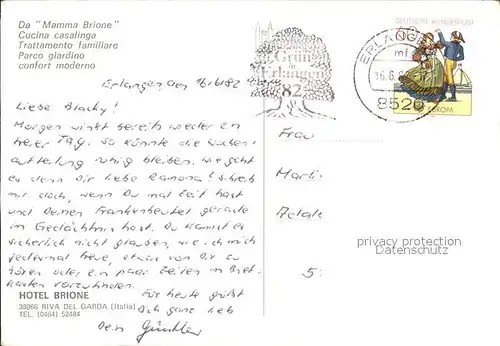 Da "Mamma Brione"
Cucina casalinga
Trattamento familiare
Parco giardino
confort moderno
DEUTSCHE BUNDESPOST
Grün
in
Erlangen
82
ERLANGEN
mf
16.6.
8520
EUROPA
Erlangen, den 16.6.82
Liebe Blacky!
Morgen winkt bereits wieder ein
freier Tag. So könnte die Wochen-
aufteilung ruhig bleiben. Wie geht
es denn Dir liebe Ramona? Schreib
mir doch, wenn Du mal Zeit hast
und Deinen Frankenbeutel gerade
im Gedächtnis hast. Du kannst es
sicherlich nicht glauben, wie ich mich
jedesmal freue, etwas von Dir zu
hören oder ein paar Zeilen im Brief-
kasten vorzufinden.
Für heute grüßt
Dich ganz lieb
Dein Günther
Frau
privacy protection
Datenschutz
5
HOTEL BRIONE
38066 RIVA DEL GARDA (Italia)
TEL. (0464) 52484